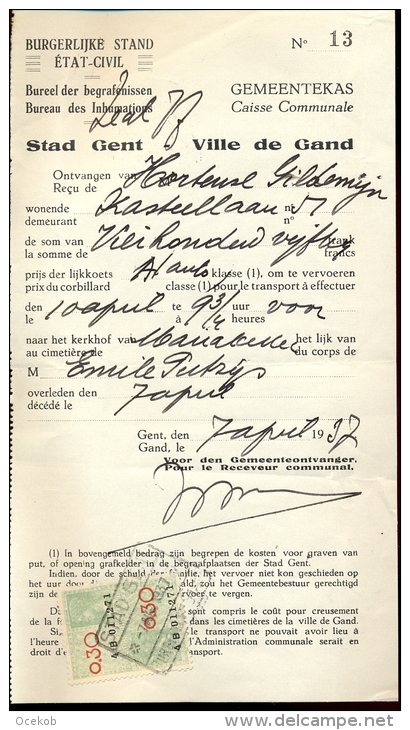 BURGERLIJKE STAND
ÉTAT-CIVIL
No 13
Bureel der begrafenissen
Bureau des Inhumations
GEMEENTEKAS
Caisse Communale
Stad Gent Ville de Gand
Ontvangen van
Reçu de
Hortense Gildemijn
wonende
demeurant
Kasteellaan nr 51
n°
de som van
la somme de
Vierhonderd vijftig frank
francs
prijs der lijkkoets A auto klasse (1), om te vervoeren
prix du corbillard classe (1) pour le transport à effectuer
den
le
10 april te 9 3/4 uur voor
à heures
naar het kerkhof van
au cimetière de
Mariakerke het lijk van
du corps de
M Emile
overleden den
décédé le
7 april
Gent, den
Gand, le
7 april 1937
Voor den Gemeenteontvanger,
Pour le Receveur communal.
(1) In bovengemeld bedrag zijn begrepen de kosten voor graven van
put, of opening grafkelder in de begraafplaatsen der Stad Gent.
Indien, door de schuld der familie, het vervoer niet kon geschieden op
het uur door ald, zou het Gemeentebestuur gerechtigd
zijn de vervoer.
sont compris le coût pour creusement
de la f dans les cimetières de la ville de Gand.
Si, le transport ne pouvait avoir lieu à
l'heure l'Administration communale serait en
droit d' transport.
0.30
A-B 011-271
0.30
A-B 011-271
Ocekob
www.delcampe.net